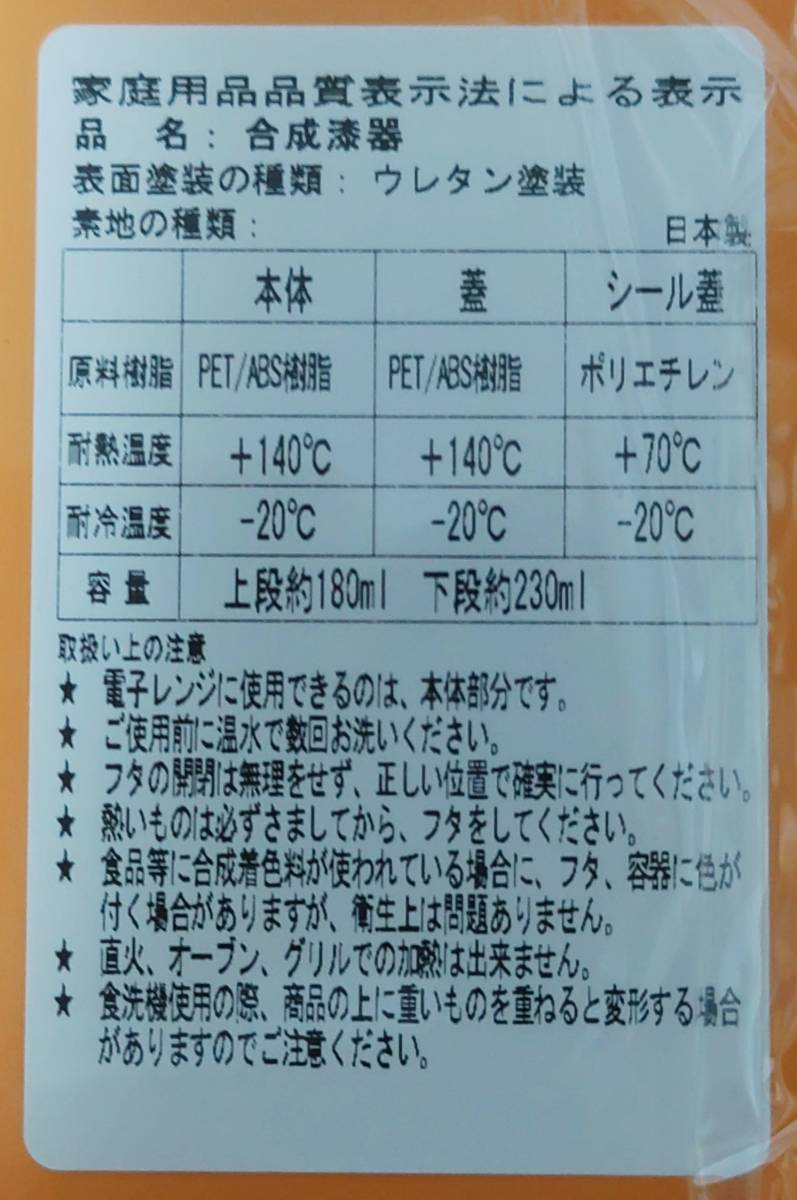 家庭用品品質表示法による表示
品　名：合成漆器
表面塗装の種類：ウレタン塗装
素地の種類：　日本製
本体　蓋　シール蓋
原料樹脂　PET/ABS樹脂　PET/ABS樹脂　ポリエチレン
耐熱温度　+140℃　+140℃　+70℃
耐冷温度　-20℃　-20℃　-20℃
容量　上段約180ml　下段約230ml
取扱い上の注意
★ 電子レンジに使用できるのは、本体部分です。
★ ご使用前に温水で数回お洗いください。
★ フタの開閉は無理をせず、正しい位置で確実に行ってください。
★ 熱いものは必ずさましてから、フタをしてください。
★ 食品等に合成着色料が使われている場合に、フタ、容器に色が
付く場合がありますが、衛生上は問題ありません。
★ 直火、オーブン、グリルでの加熱は出来ません。
★ 食洗機使用の際、商品の上に重いものを重ねると変形する場合
がありますのでご注意ください。